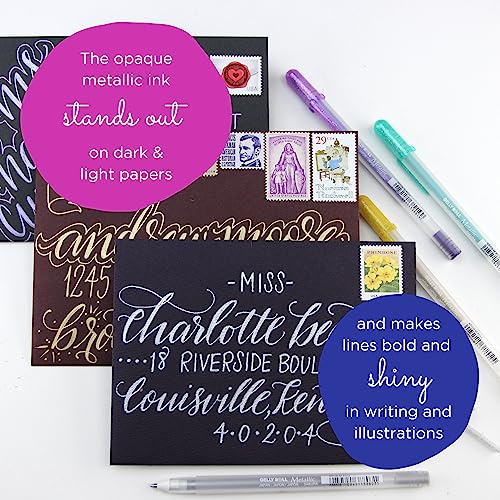 The opaque
metallic ink
stands out
on dark &
light papers
29 USA
PRIMROSE
andrew moore
1245
bro
-MISS-
charlotte be
....18 RIVERSIDE BOUL
Louisville, Ken
4.0.2.0.4
and makes
lines bold and
shiny
in writing and
illustrations
GELLY ROLL Metallic